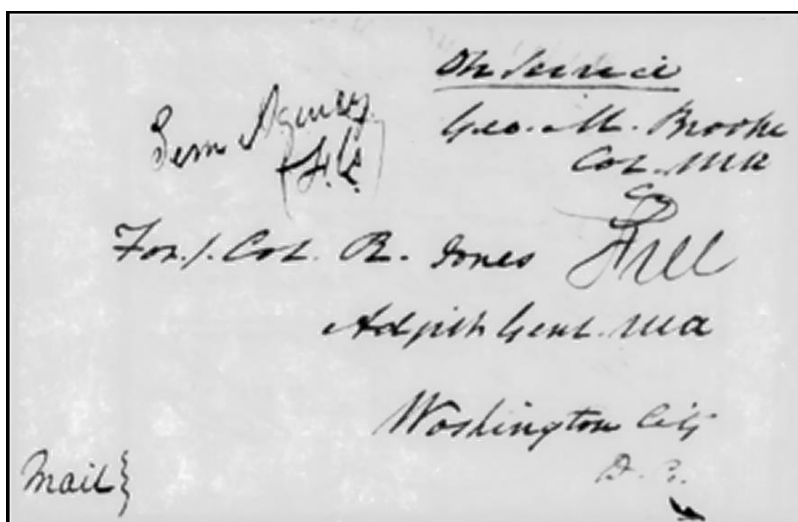 On Service
Geo. M. Brooke
Col. USA
Sem Agency
F.T.
Free
For/. Col. R. Jones
Adjt Genl. USA
Washington City
D. C.
Mail}